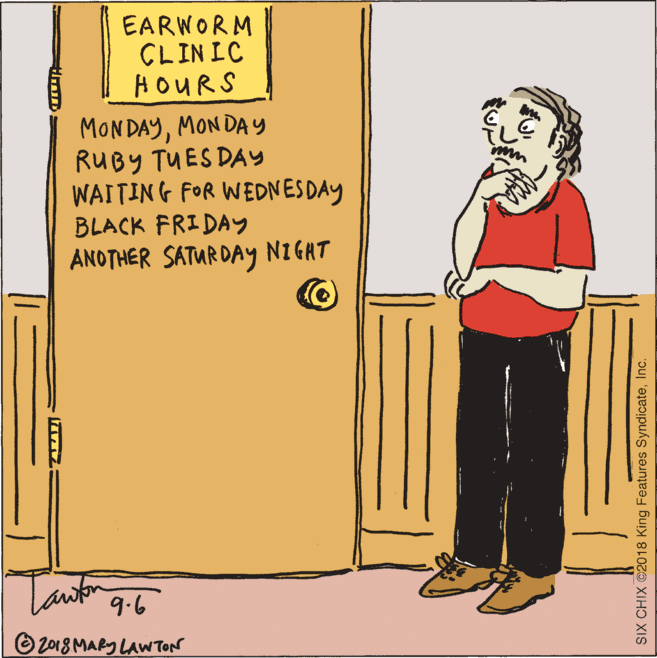 EARWORM
CLINIC
HOURS
MONDAY, MONDAY
RUBY TUESDAY
WAITING FOR WEDNESDAY
BLACK FRIDAY
ANOTHER SATURDAY NIGHT
Lawton
9-6
©2018 MARY LAWTON
SIX CHIX ©2018 King Features Syndicate, Inc.